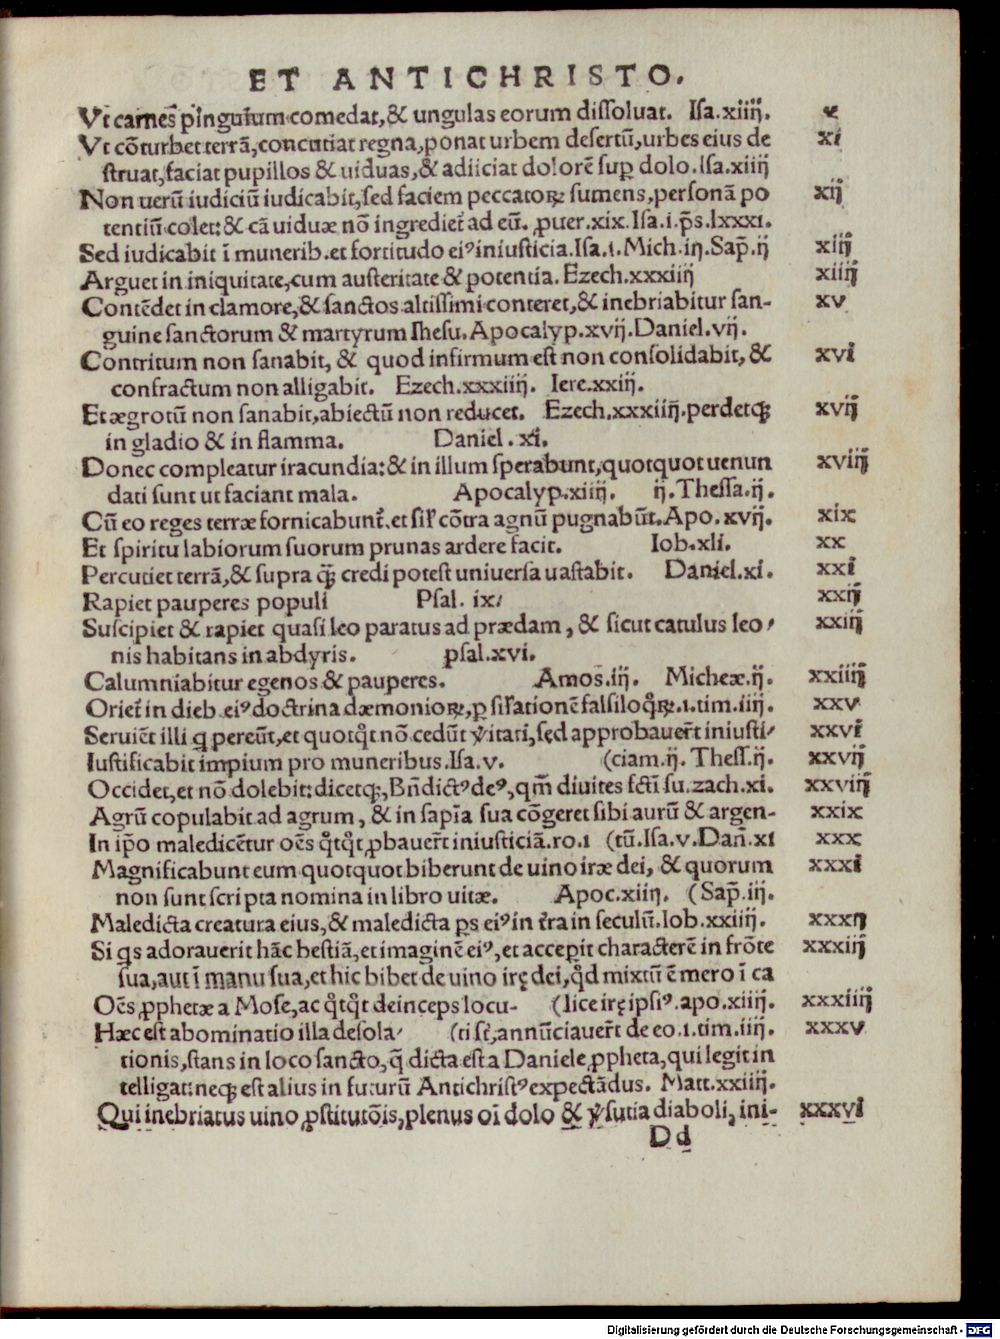 ET ANTICHRISTO.
Vt carnes pinguium comedat,& ungulas eorum dissoluat. Isa.xiiij. x
Vt cōturbet terrā,concutiat regna,ponat urbem desertū,urbes eius de xi
struat,faciat pupillos & uiduas,& adiiciat dolorē suꝑ dolo.Isa.xiiij
Non uerū iudiciū iudicabit,sed faciem peccatorꝝ sumens,personā po xij
tentiū colet:& cā uiduæ nō ingrediet᷑ ad eū. ꝓuer.xix.Isa.i.p̄s.lxxxi.
Sed iudicabit ī munerib.et fortitudo eiꝰ iniusticia.Isa.i.Mich.iij.Sap̄.ij xiij
Arguet in iniquitate,cum austeritate & potentia. Ezech.xxxiiij xiiij
Contēdet in clamore,& sanctos altissimi conteret,& inebriabitur san- xv
guine sanctorum & martyrum Ihesu.Apocalyp.xvij.Daniel.vij.
Contritum non sanabit, & quod infirmum est non consolidabit, & xvi
confractum non alligabit. Ezech.xxxiiij. Iere.xxiij.
Et ægrotū non sanabit,abiectū non reducet. Ezech.xxxiiij.perdetqꝫ xvij
in gladio & in flamma. Daniel.xi.
Donec compleatur iracundia:& in illum sperabunt,quotquot uenun xviij
dati sunt ut faciant mala. Apocalyp.xiiij. ij.Thessa.ij.
Cū eo reges terræ fornicabunt᷑.et sil̉r cōtra agnū pugnabūt.Apo.xvij. xix
Et spiritu labiorum suorum prunas ardere facit. Iob.xli. xx
Percutiet terrā,& supra qꝫ̄ credi potest uniuersa uastabit. Daniel.xi. xxi
Rapiet pauperes populi Psal. ix/ xxij
Suscipiet & rapiet quasi leo paratus ad prædam, & sicut catulus leo/ xxiij
nis habitans in abdyris. psal.xvi.
Calumniabitur egenos & pauperes. Amos.iij. Micheæ.ij. xxiiij
Oriet᷑ in dieb.eiꝰ doctrina dæmoniorꝝ,ꝑ sil̉ationē falsiloq̊rꝝ.1.tim.iiij. xxv
Seruiēt illi q pereūt,et quotq̊t nō cedūt v̓itati,sed approbauer̄t iniusti/ xxvi
Iustificabit impium pro muneribus.Isa.v. (ciam.ij. Thess.ij. xxvij
Occidet,et nō dolebit:dicetqꝫ,Bn̄dictꝰ deꝰ,qm̄ diuites fcti su.zach.xi. xxviij
Agrū copulabit ad agrum, & in sap̄ia sua cōgeret sibi aurū & argen- xxix
In ip̄o maledicētur oēs q̊tq̊t ꝓbauer̄t iniusticiā.ro.1 (tū.Isa.v.Dan̄.xi xxx
Magnificabunt eum quotquot biberunt de uino iræ dei, & quorum xxxi
non sunt scripta nomina in libro uitæ. Apoc.xiiij. (Sap̄.iij.
Maledicta creatura eius,& maledicta ps eiꝰ in t̓ra in seculū.Iob.xxiiij. xxxij
Si qs adorauerit hāc bestiā,et imaginē eiꝰ,et acceꝑit characterē in frōte xxxiij
sua,aut ī manu sua,et hic bibet de uino irę dei,q̊d mixtū ē mero ī ca
Oēs ꝓphetæ a Mose,ac q̊tq̊t deinceps locu- (lice irę ipsiꝰ.apo.xiiij. xxxiiij
Hæc est abominatio illa desola/ (ti st̄,annūciauer̄t de eo.1.tim.iiij. xxxv
tionis,stans in loco sancto,q̄ dicta est a Daniele ꝓpheta,qui legit in
telligat:neqꝫ est alius in futurū Antichristꝰ expectādus. Matt.xxiiij.
Qui inebriatus uino ꝓstitutōis,plenus oī dolo & v̓sutia diaboli, ini- xxxvi
Dd
Digitalisierung gefördert durch die Deutsche Forschungsgemeinschaft - DFG